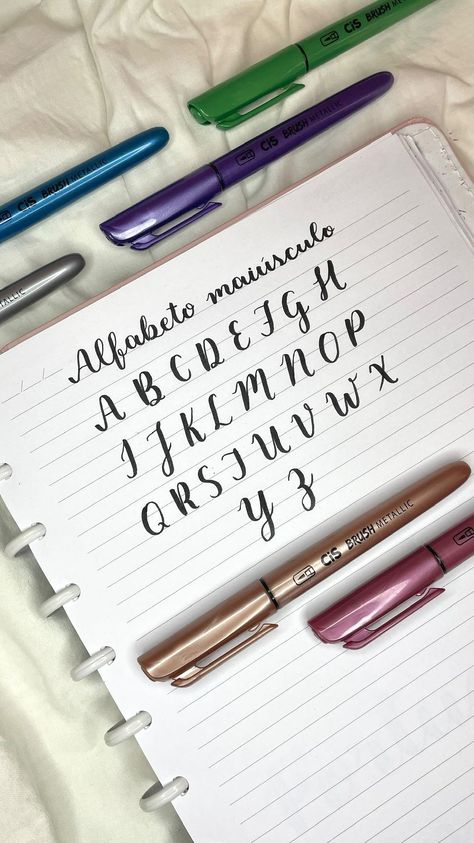 CiS BRUSH METALLIC
CiS BRUSH METALLIC
CiS BRUSH METALLIC
METALLIC
Alfabeto maiúsculo
A B C D E F G H
I J K L M N O P
Q R S T U V W X
Y Z
CiS BRUSH METALLIC
CiS